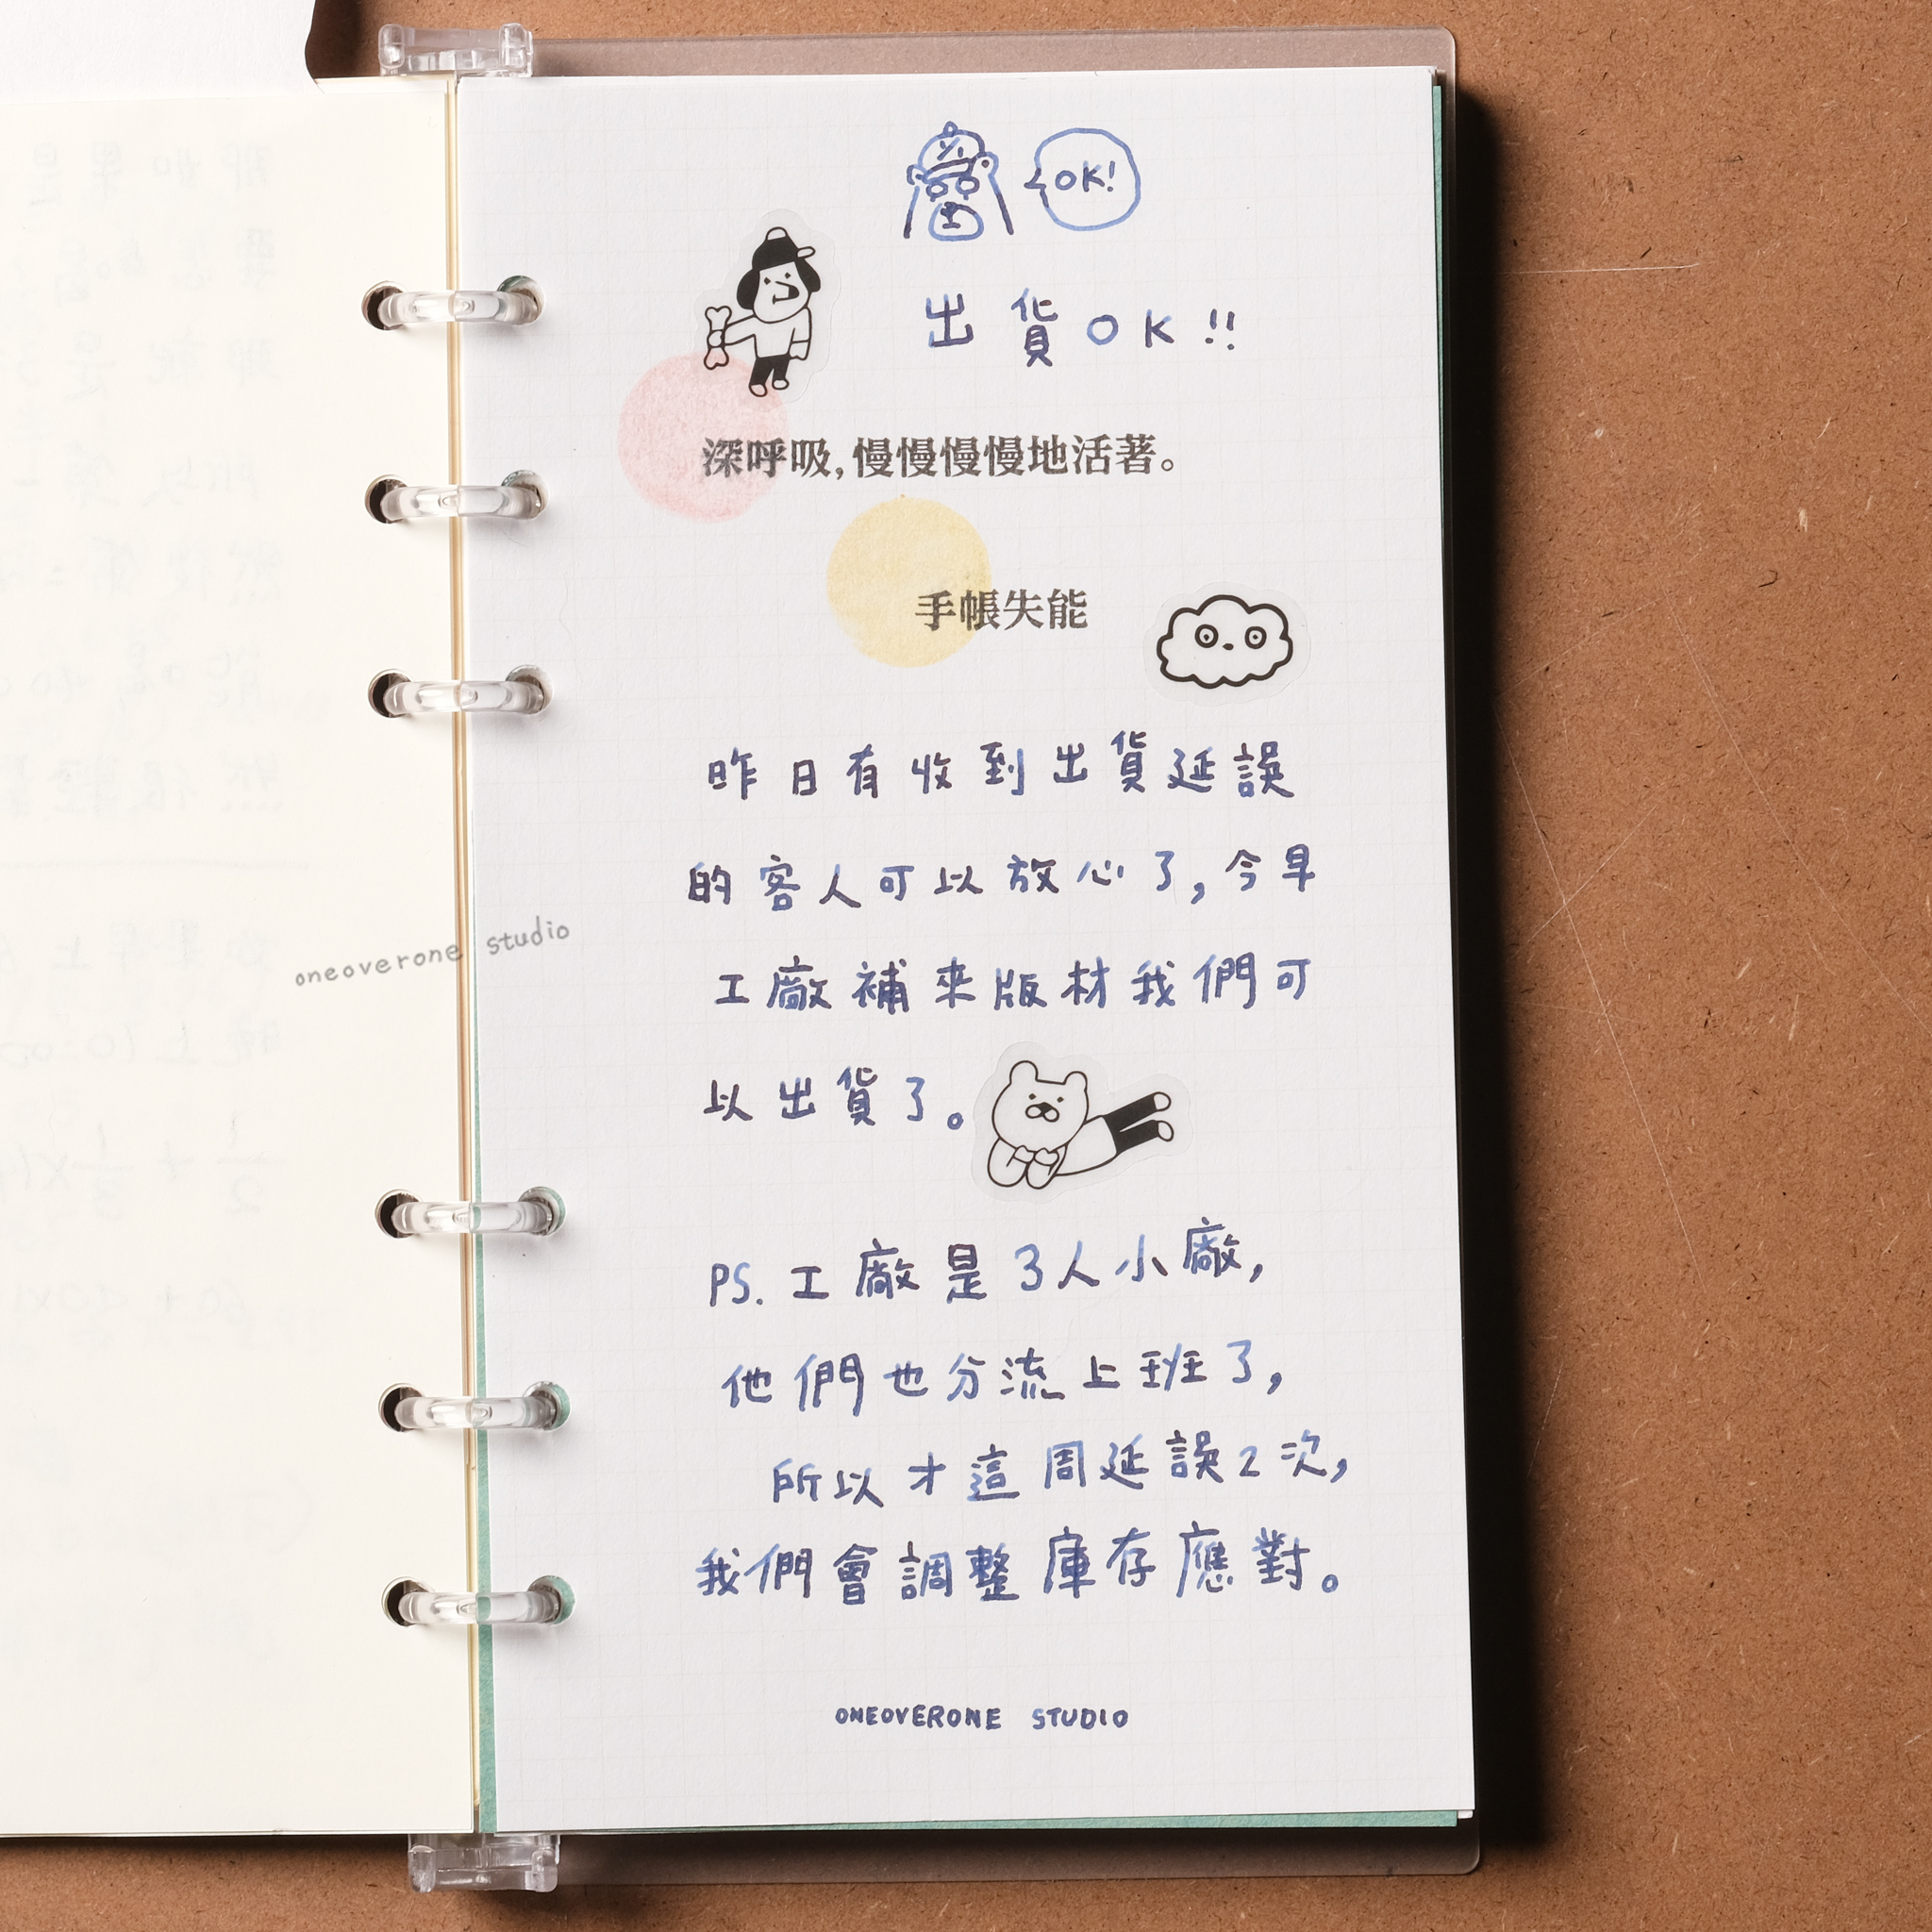 OK!
出貨OK!!
深呼吸,慢慢慢慢地活著。
手帳失能
昨日有收到出貨延誤
的客人可以放心了,今早
工廠補來版材我們可
以出貨了。
PS.工廠是3人小廠,
他們也分流上班了,
所以才這周延誤2次,
我們會調整庫存應對。
ONEOVERONE STUDIO
oneoverone studio